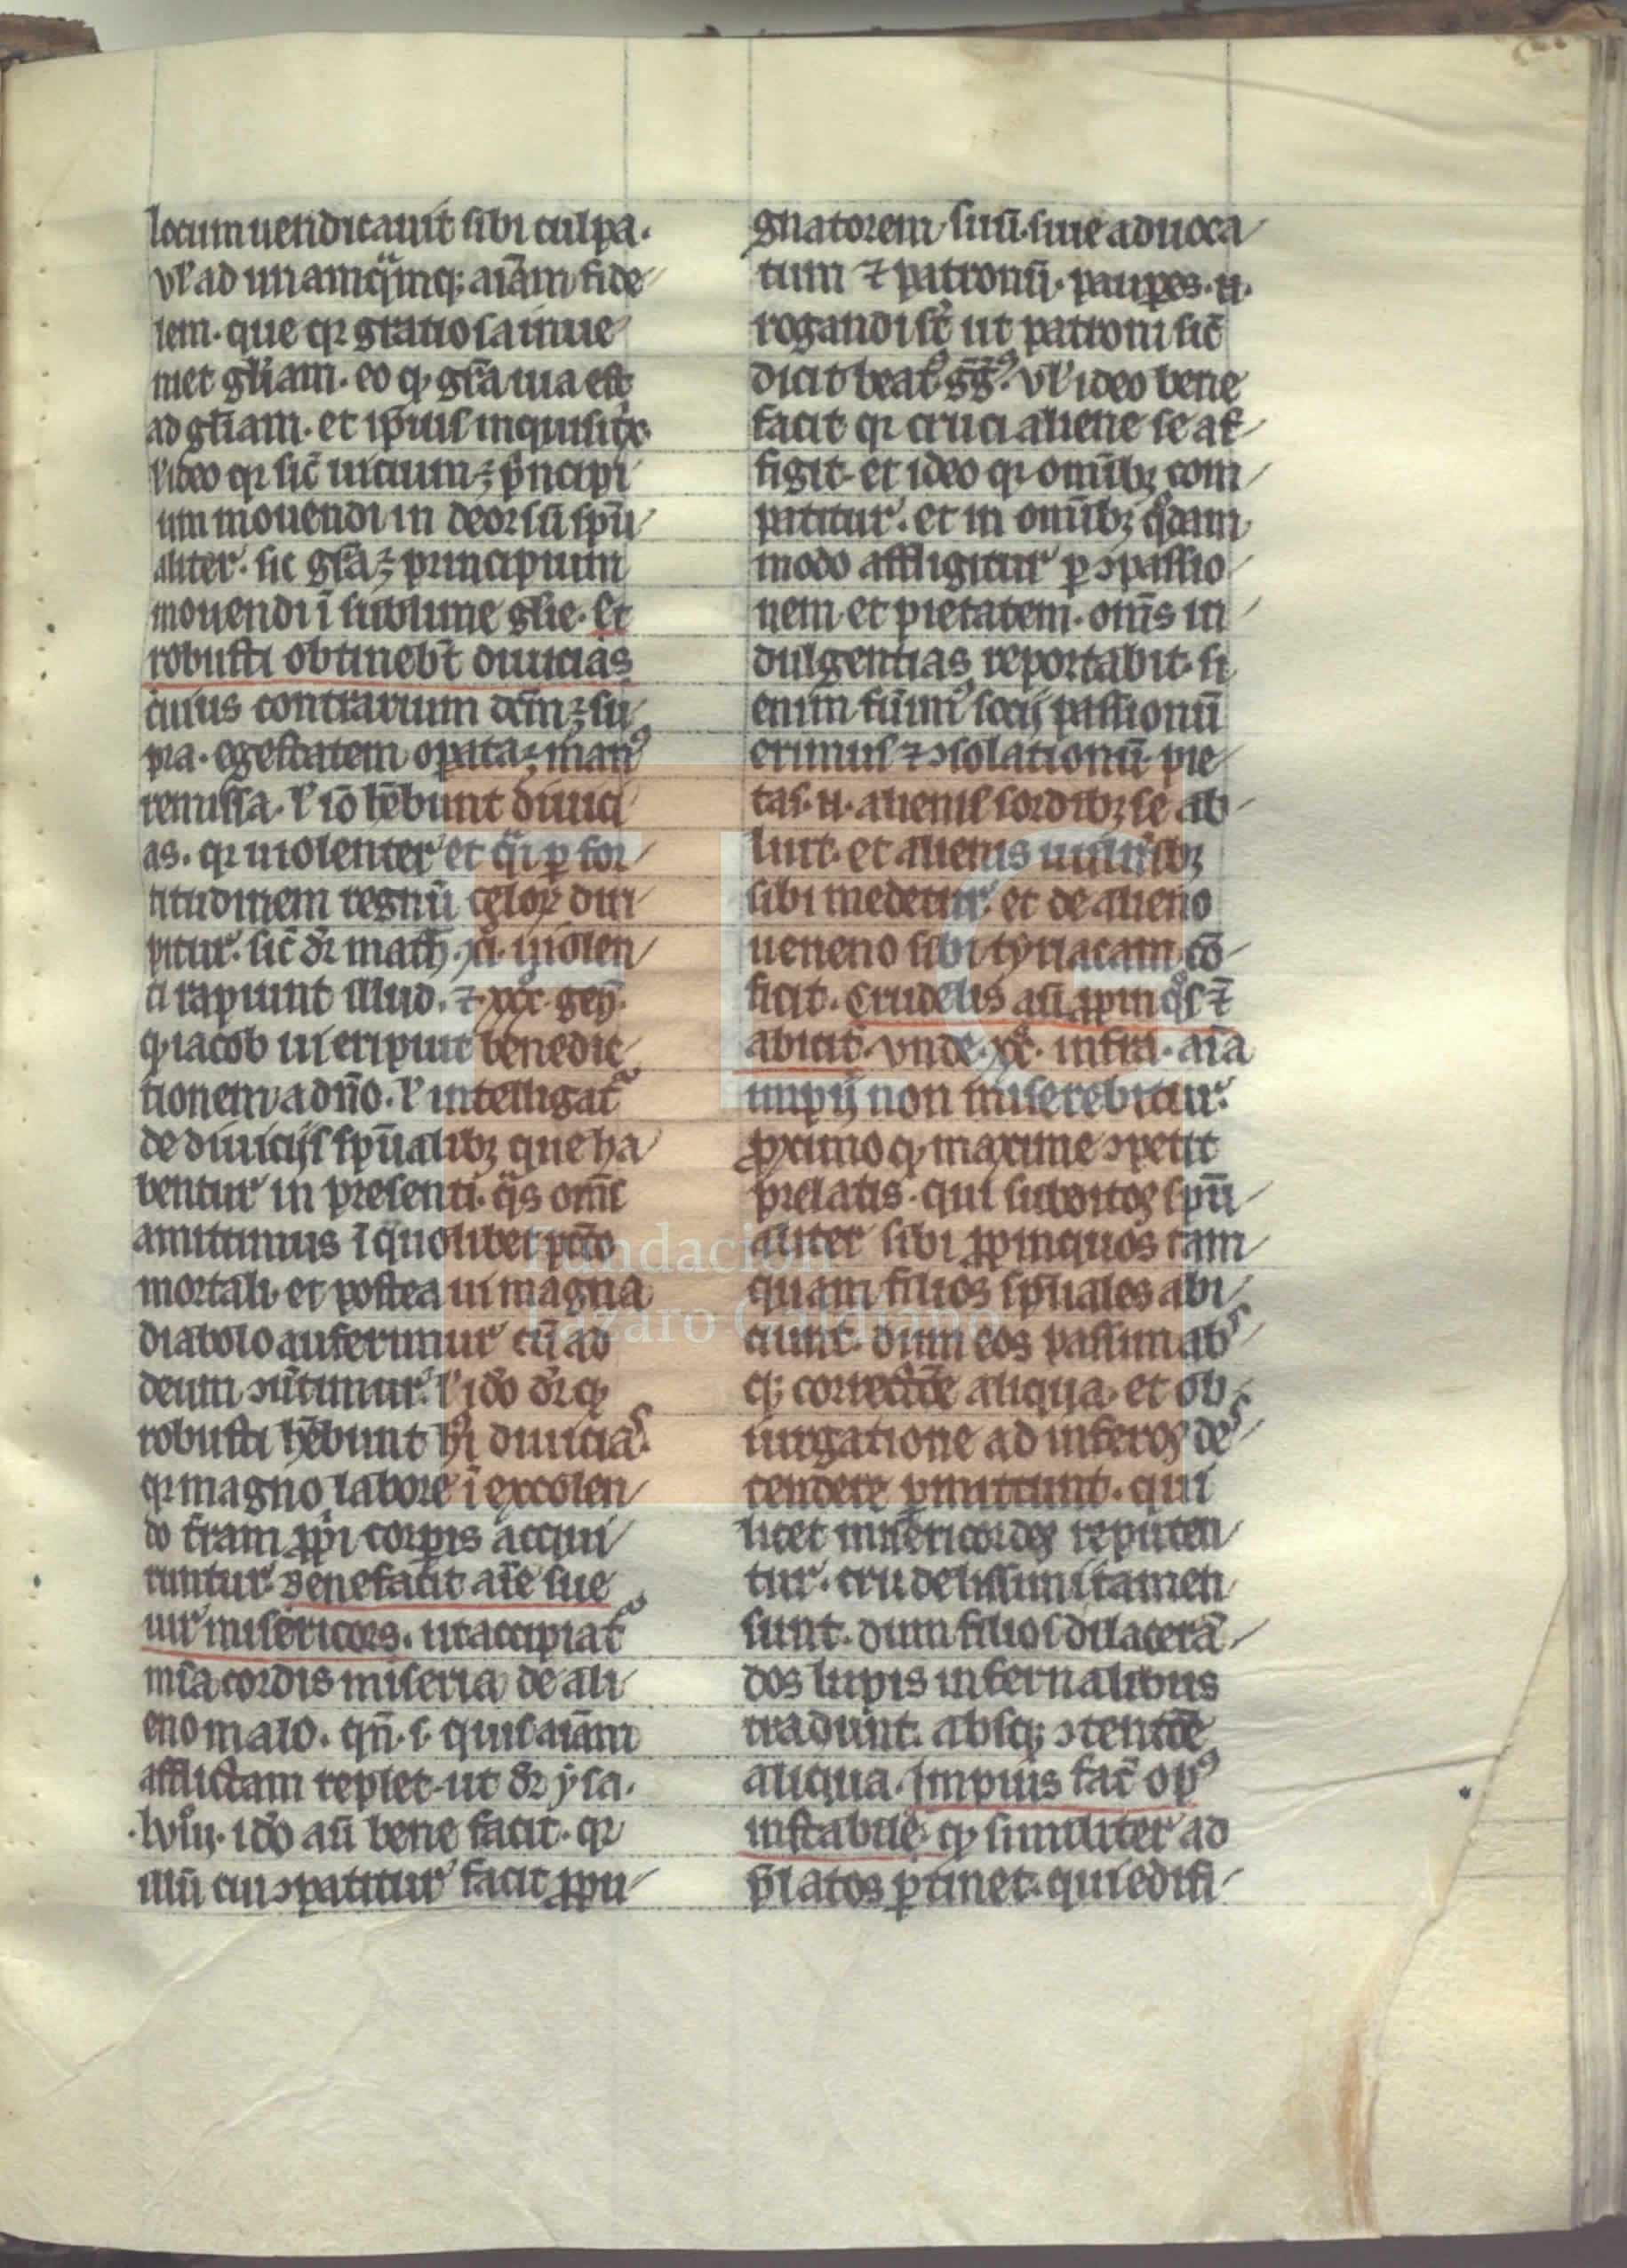 locum uendicauit sibi culpa.
vl' ad unamq̈mq; aīam fide
lem. que qr gratiosa inue
niet gl'iam. eo q gr̄a uia est
ad gl'iam. et ip̄ius inquisitix
l' ideo qr sic̄ uicium ÷ p̄ncipi
um mouendi in deorsū sp̄u
aliter. sic gr̄a ÷ principium
mouendi ī sublime gl'ie. Et
robusti obtinebt̄ diuicias
cuius contrarium dc̄m ÷ su
pra. egestatem opata ÷ man᾿
remissa. l' iō hēbunt diuici
as. qr uiolenter et q̈i ꝑ for
titudinem regnū celoꝝ diri
pitur. sic̄ dr̄ math. xi. uiolen
ti rapiunt illud. ⁊ xxx. gen̄.
q iacob ui eripuit benedic
tionem a dn̄o. l' intelligat᷑
de diuicijs sp̄ualibꝫ que ha
bentur in presenti. q̈s om̄s
amittimus ī quolibet pctō
mortali. et postea ui magna
diabolo auferimur cū ad
deum ꝯūtimur. l' idō dr̄ q
robusti hēbunt hi᾿ diuicias.
qr magno labore ī excolen
do tr̄am ꝓpi corꝑis accqui
runtur. Benefacit aīe sue
uir misericors. ut accipiat᷑
mīa cordis miseria de ali
eno malo. qn̄. i. quis aīam
afflictam replet. ut dr̄ ysa.
.lviij. idō aū bene facit. qr
illū cui ꝯpatitur facit ꝓpu
gnatorem suū. siue aduoca
tum ⁊ patronū. pauꝑes. n.
rogandi st̄ ut patroni sic̄
dicit beat᾿ gg᾿. vl' ideo bene
facit qr cruci aliene se af
figit. et ideo qr omībꝫ com
patitur. et in omībꝫ qͦdam
modo affligitur ꝑ ꝯpassio
nem. et pietatem. om̄s in
dulgentias reportabit. si
enim fūim᾿ socij passionū
erimus ⁊ ꝯsolationū. pie
tas. n. alienis sordibꝫ se ab
luit. et alienis uuln̄ibꝫ
sibi medetur. et de alieno
ueneno sibi tyriacam cō
ficit. Crudelis aū ꝓpinqͦs ⁊
abicit. vnde. xx. infra. aīa
impij non miserebitur.
ꝓximo q maxime ꝯpetit
prelatis. qui subditos sp̄u
aliter sibi ꝓpinquos tam
quam filios sp̄uales abi
ciunt. dum eos passim abs
q; correctiōe aliqua. et ob
iurgatione ad inferos des
cendere ꝑmittunt. qui
licet misericordes reputen
tur. crudelissimi tamen
sunt. dum filios dilacerā
dos lupis infernalibus
tradunt. absq; ꝯtentiōe
aliqua. Impius fac̄ op᾿
instabile. q similiter ad
p̄latos ꝑtinet. qui edifi